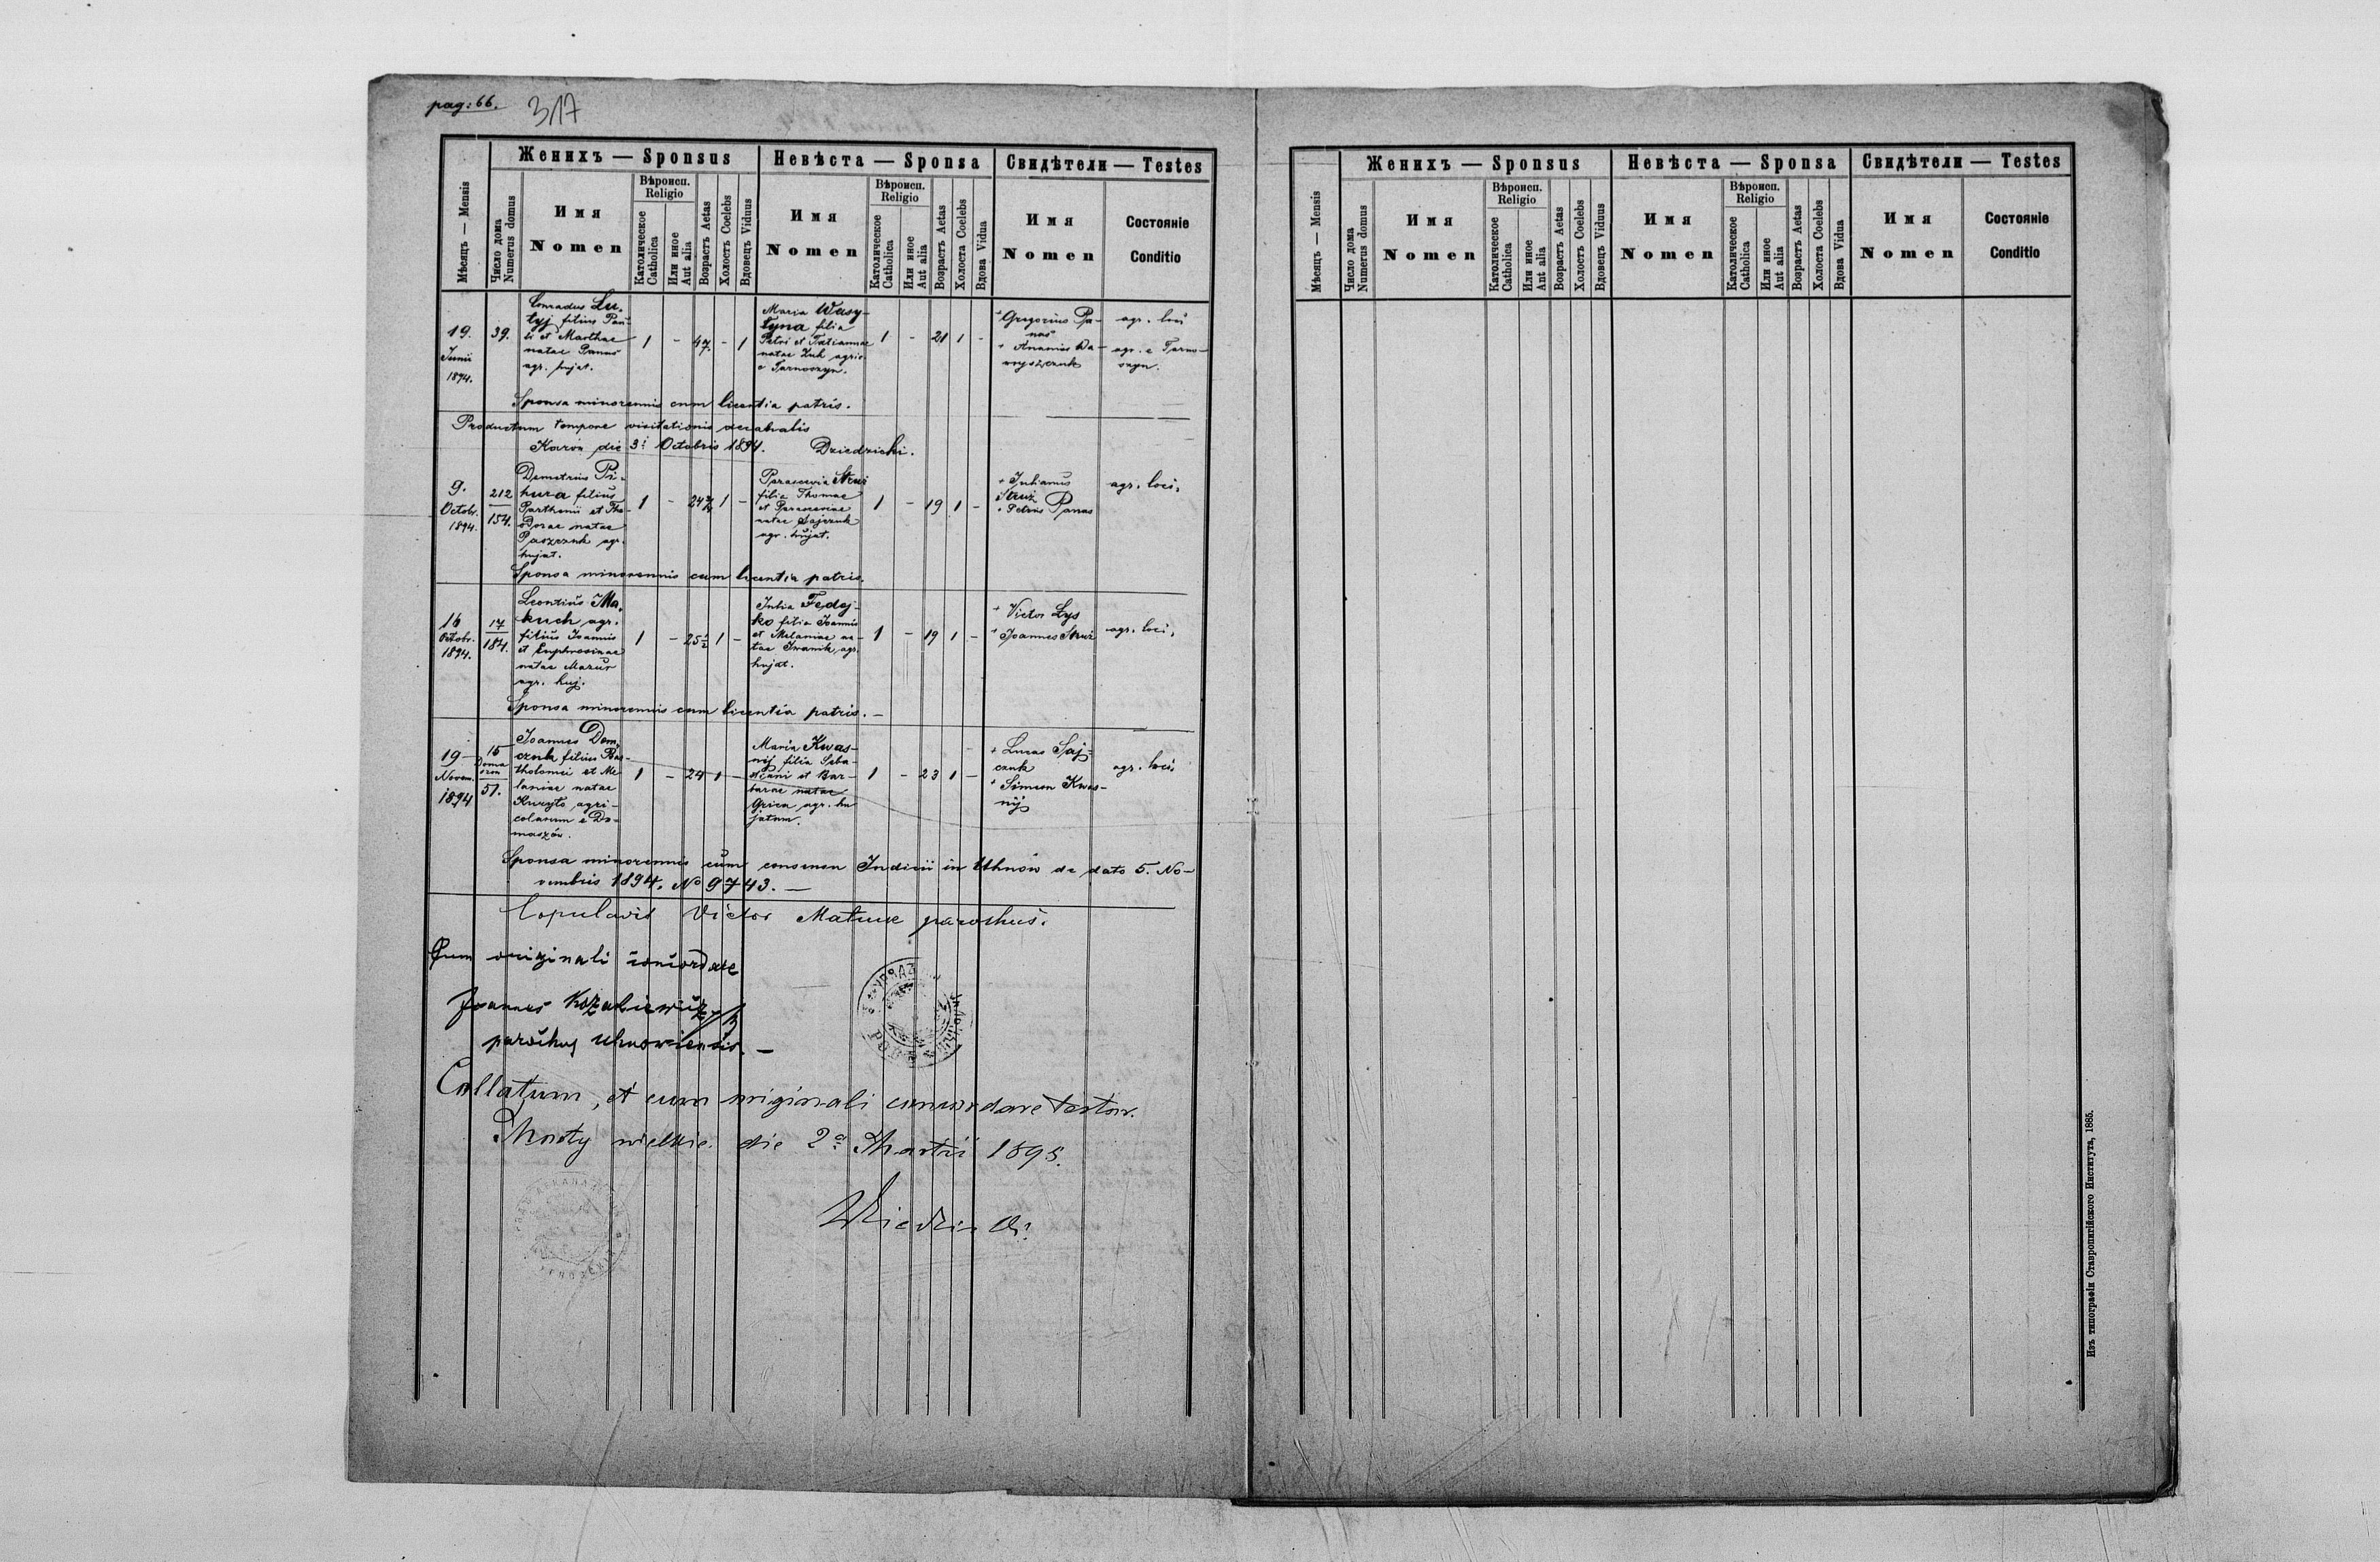 pag: 66.
317
Женихъ — Sponsus
Невѣста — Sponsa
Свидѣтели — Testes
Мѣсяцъ — Mensis
Число дома
Numerus domus
Имя
Nomen
Вѣроисп.
Religio
Католическое
Catholica
Или иное
Aut alia
Возрастъ Aetas
Холостъ Coelebs
Вдовецъ Viduus
Имя
Nomen
Вѣроисп.
Religio
Католическое
Catholica
Или иное
Aut alia
Возрастъ Aetas
Холоста Coelebs
Вдова Vidua
Имя
Nomen
Состояніе
Conditio
19.
Junii
1894.
39.
Conradus Lu-
tyj filius Pau-
li et Marthae
natae Panas
agr. hujat.
1 - 47. - 1
Maria Wasy-
łyna filia
Petri et Tatiannae
natae Żuk agric.
e Tarnoszyn.
1 - 21 1 -
+ Gregorius Pa-
nas
+ Ananias Wa-
agr. loci
agr. e Tarno-
szyn.
Sponsa minorennis cum licentia patris.
Productum tempore visitationis decanalis
Karów die 3i Octobris 1894. Dziedzicki.
9.
Octobr.
1894.
212
154.
Demetrius Pi-
hura filius
Parthenii et Theo-
dorae natae
Paszczuk agr.
hujat.
1 - 24 1 -
Parascevia Struż
filia Thomae
et Parasceviae
natae Sajczuk
agr. hujat.
1 - 19 1 -
+ Julianus
Struż
+ Petrus Panas
agr. loci.
Sponsa minorennis cum licentia patris.
16
Octobr.
1894.
17
184.
Leontius Ma-
kuch agr.
filius Joannis
et Euphrosinae
natae Mazur
agr. huj.
1 - 25½ 1 -
Julia Fedej-
ko filia Joannis
et Melaniae na-
tae Iwanik agr.
hujat.
1 - 19 1 -
+ Victor Lys
+ Joannes Struż
agr. loci.
Sponsa minorennis cum licentia patris. —
19
Novem.
1894
15
Doma
szow
51.
Joannes Dem-
czuk filius Bar-
tholomei et Me-
laniae natae
Kuryło agri-
colarum e Do-
maszów.
1 - 24 1 -
Maria Kwas-
nij filia Seba-
stiani et Bar-
barae natae
agr. hu
jatum.
1 - 23 1 -
+ Lucas Saj-
czuk
+ Simeon Kwas-
nij
agr. loci
Sponsa minorennis cum consensu Judicii in Uhnów de dato 5. No-
vembris 1894. No 9743. —
Copulavit Victor Matiuk parochus.
Cum originali concordare
Joannes Kozakiewicz
parochus Uhnowiensis. —
Collatum, et cum originali concordare testor.
Mosty wielkie die 2a Martii 1895.
Dziedzicki
Женихъ — Sponsus
Невѣста — Sponsa
Свидѣтели — Testes
Мѣсяцъ — Mensis
Число дома
Numerus domus
Имя
Nomen
Вѣроисп.
Religio
Католическое
Catholica
Или иное
Aut alia
Возрастъ Aetas
Холостъ Coelebs
Вдовецъ Viduus
Имя
Nomen
Вѣроисп.
Religio
Католическое
Catholica
Или иное
Aut alia
Возрастъ Aetas
Холоста Coelebs
Вдова Vidua
Имя
Nomen
Состояніе
Conditio
Изъ типографіи Ставропигійского Института, 1885.